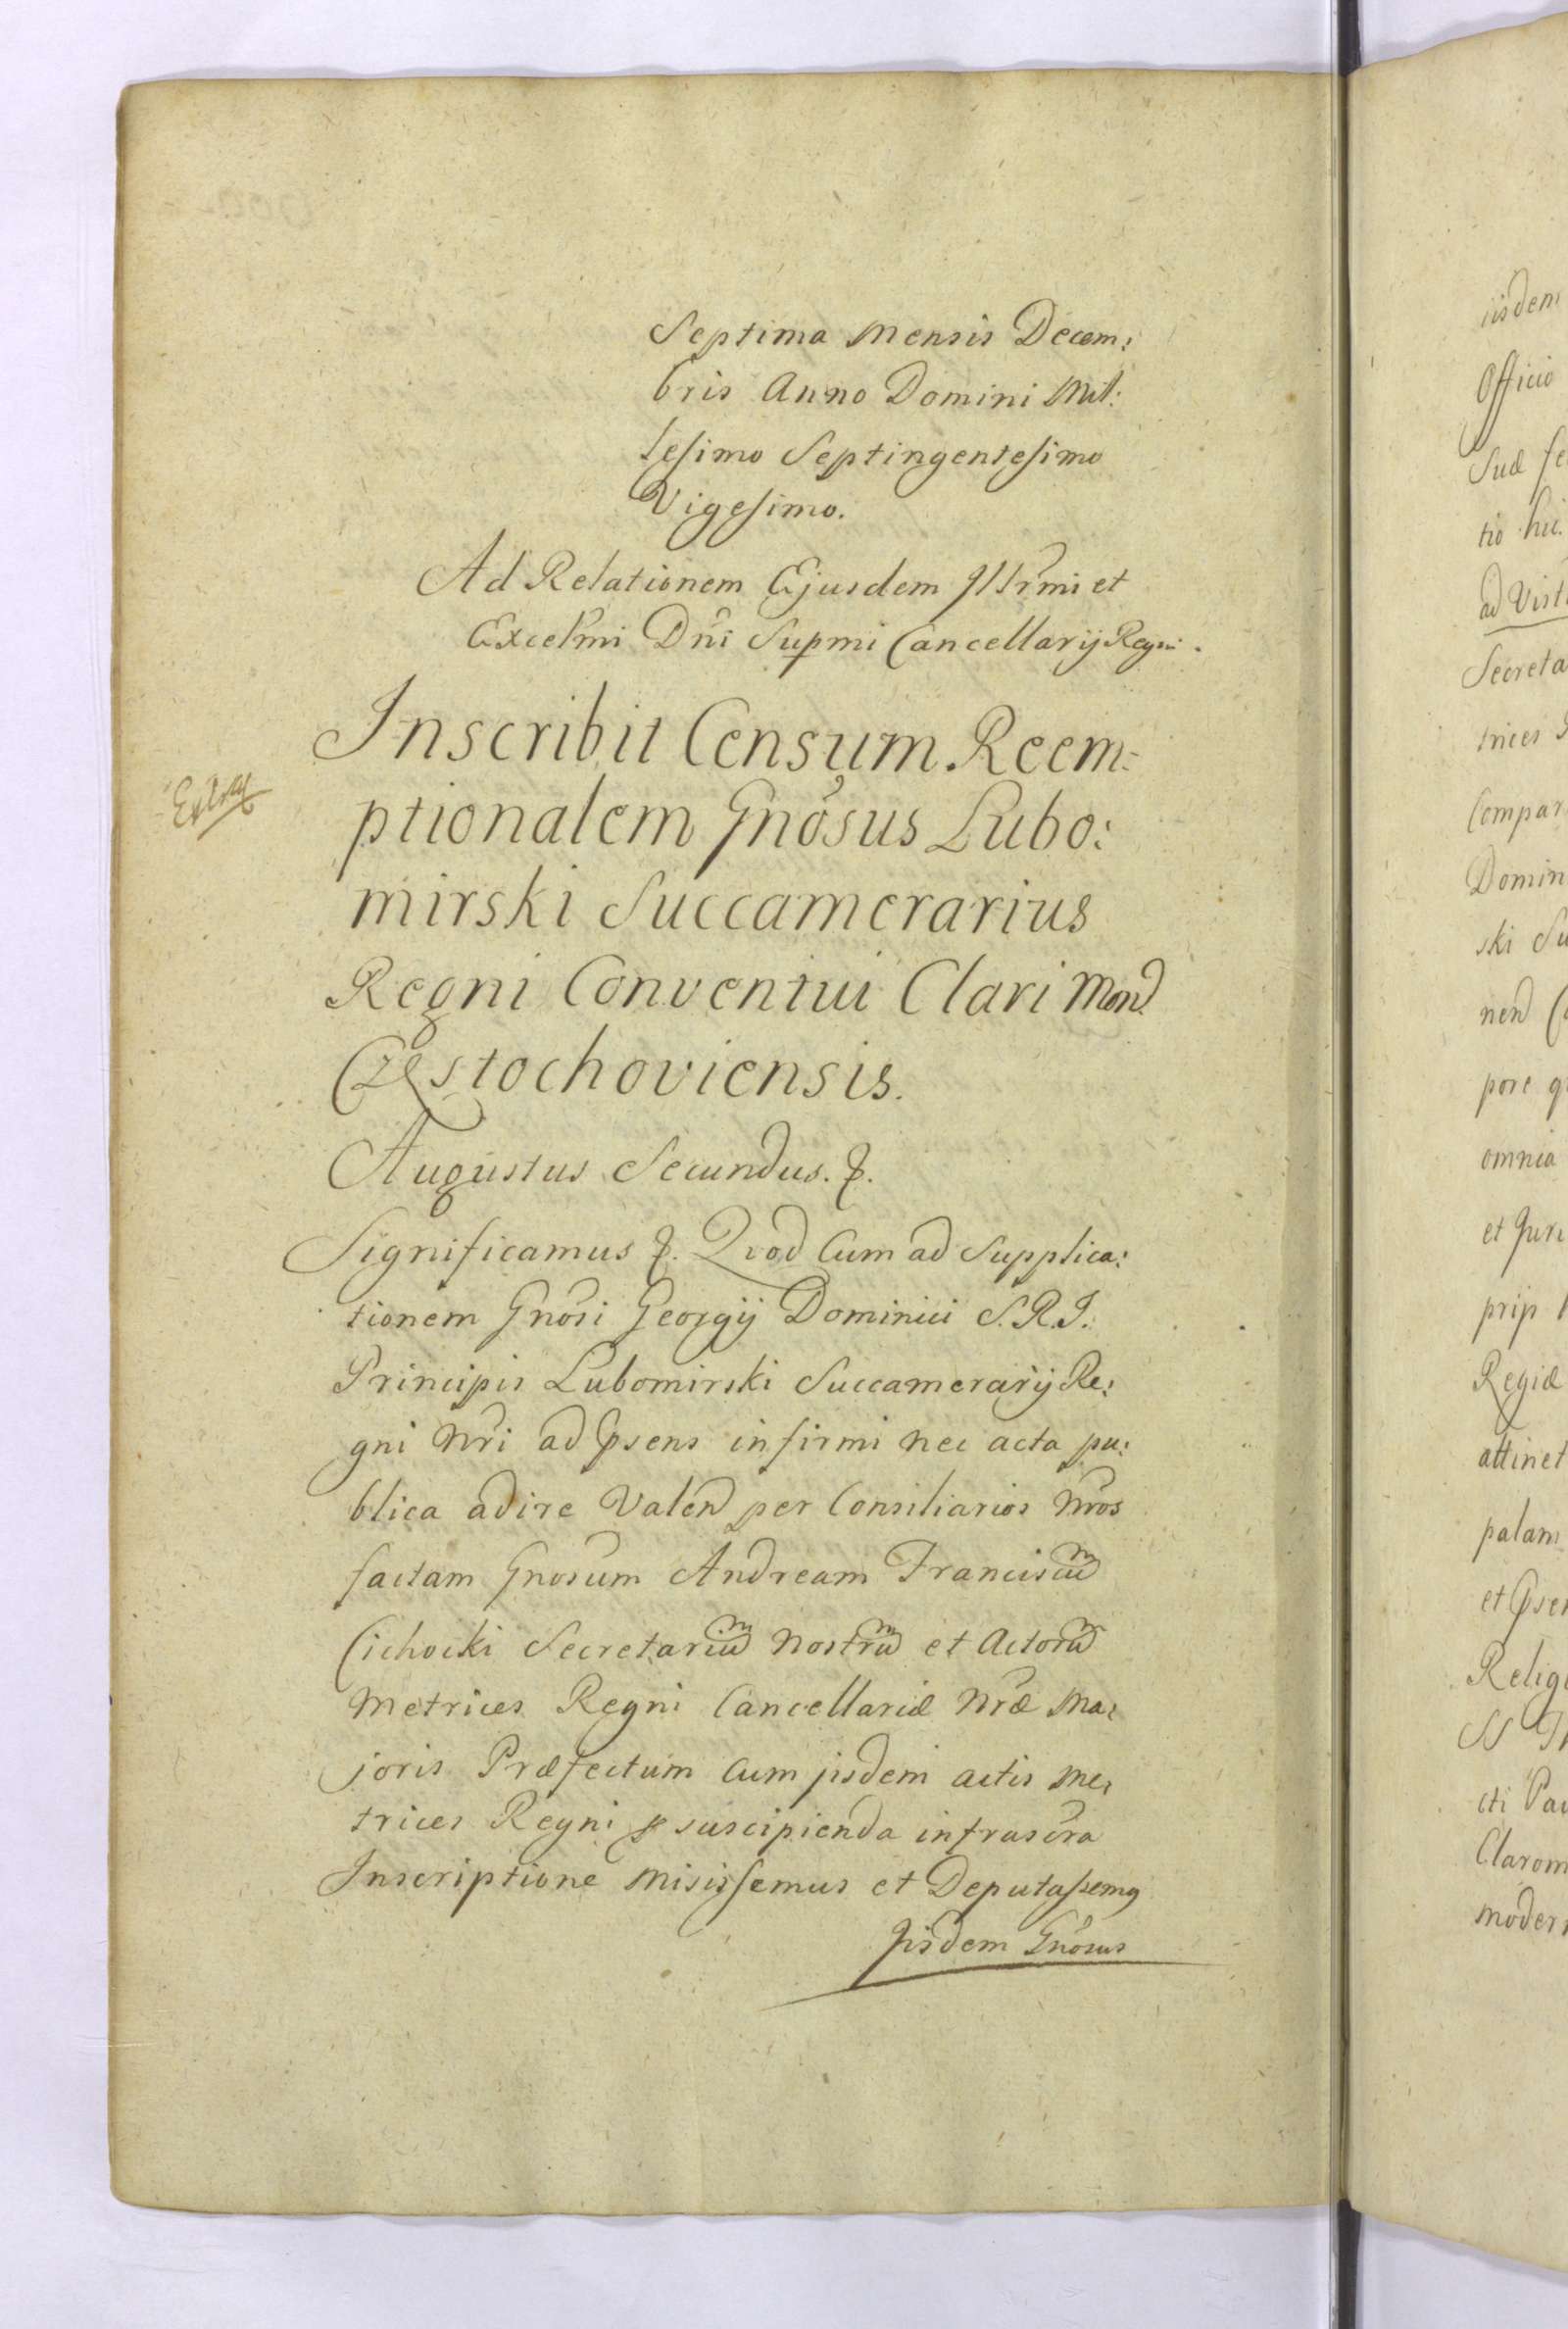 Septima Mensis Decem:
bris Anno Domini Mil:
lesimo Septingentesimo
Vigesimo.
Ad Relationem Ejusdem Illrmi et
Excelmi Dñi Supmi Cancellarij Regni.
Inscribit Censum Reem-
ptionalem Gnosus Lubo:
mirski Succamerarius
Regni Conventui Clari Mond
Częstochoviensis.
Extrat
Augustus Secundus. &.
Significamus &. Qvod Cum ad Supplica:
tionem Gnosi Georgij Dominici S. R. I.
Principis Lubomirski Succamerarij Re:
gni Nri ad Psens infirmi nec acta pu:
blica adire Valen per Consiliarios Nros
factam Gnosum Andream Franciscum
Cichocki Secretarium Nostrum et Actorum
Metrices Regni Cancellariæ Nræ Ma:
joris Præfectum Cum jisdem actis Me:
trices Regni p suscipienda infrascra
Inscriptione misissemus et Deputassemq
Jisdem Gnosus
iisdem
Officio
Suæ
tio
ad
Secreta
trices
Compar
Domin
ski Su
nen
pore
omnia
et Juri
prip
Regiæ
attinet
palam
et Psen
Relig
SS
cti Pau
Clarom
modern